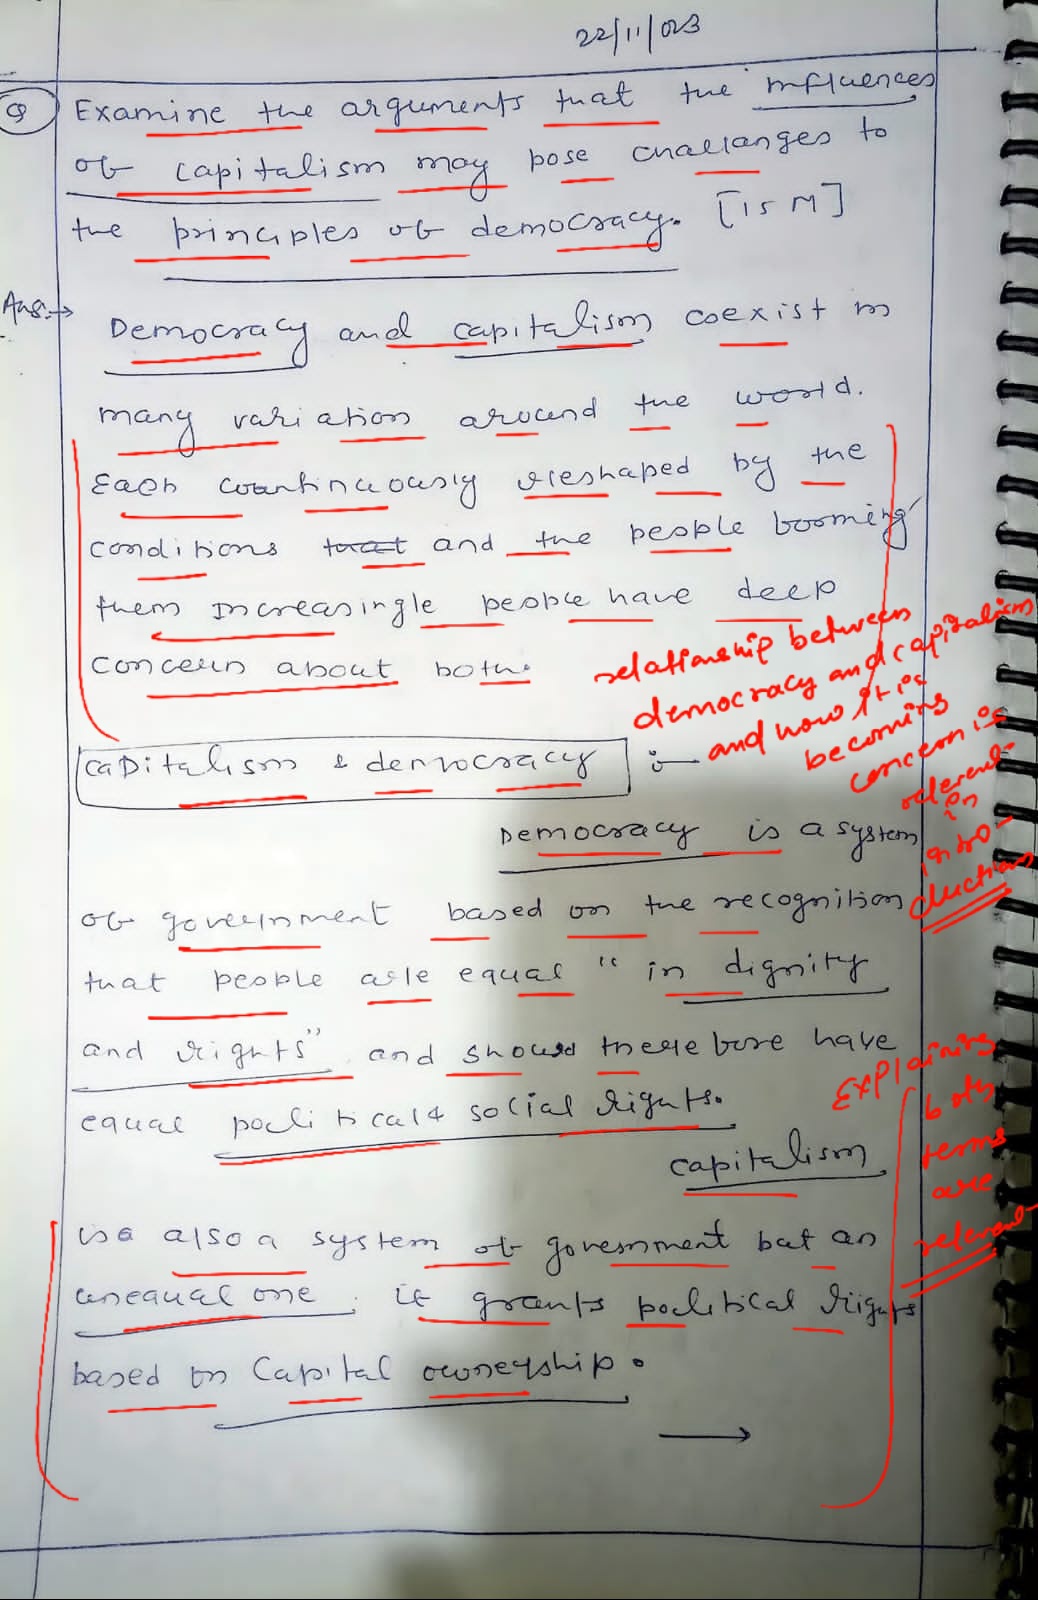 22/11/023
Q Examine the arguments that the influences
of capitalism may pose challanges to
the principles of democracy. [15 M]
Ans:→
Democracy and capitalism coexist in
many variation around the world.
Each countinuously reshaped by the
conditions that and the people booming
them increasingle people have deep
concern about both.
relationship between
democracy and capitalism
and how it is
becoming
concern is
relevent
in
intro-
duction
capitalism & democracy :-
Democracy is a system
of government based on the recognition
that people are equal "in dignity
and rights" and should therefore have
equal political & social rights.
Explaining
both
terms
are
relevent
capitalism
is a also a system of government but an
unequal one. it grants political rights
based on Capital ownership.
→